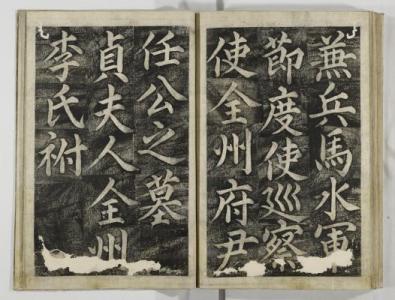 兼兵馬水軍
節度使巡察
使全州府尹
任公之墓
貞夫人全州
李氏祔